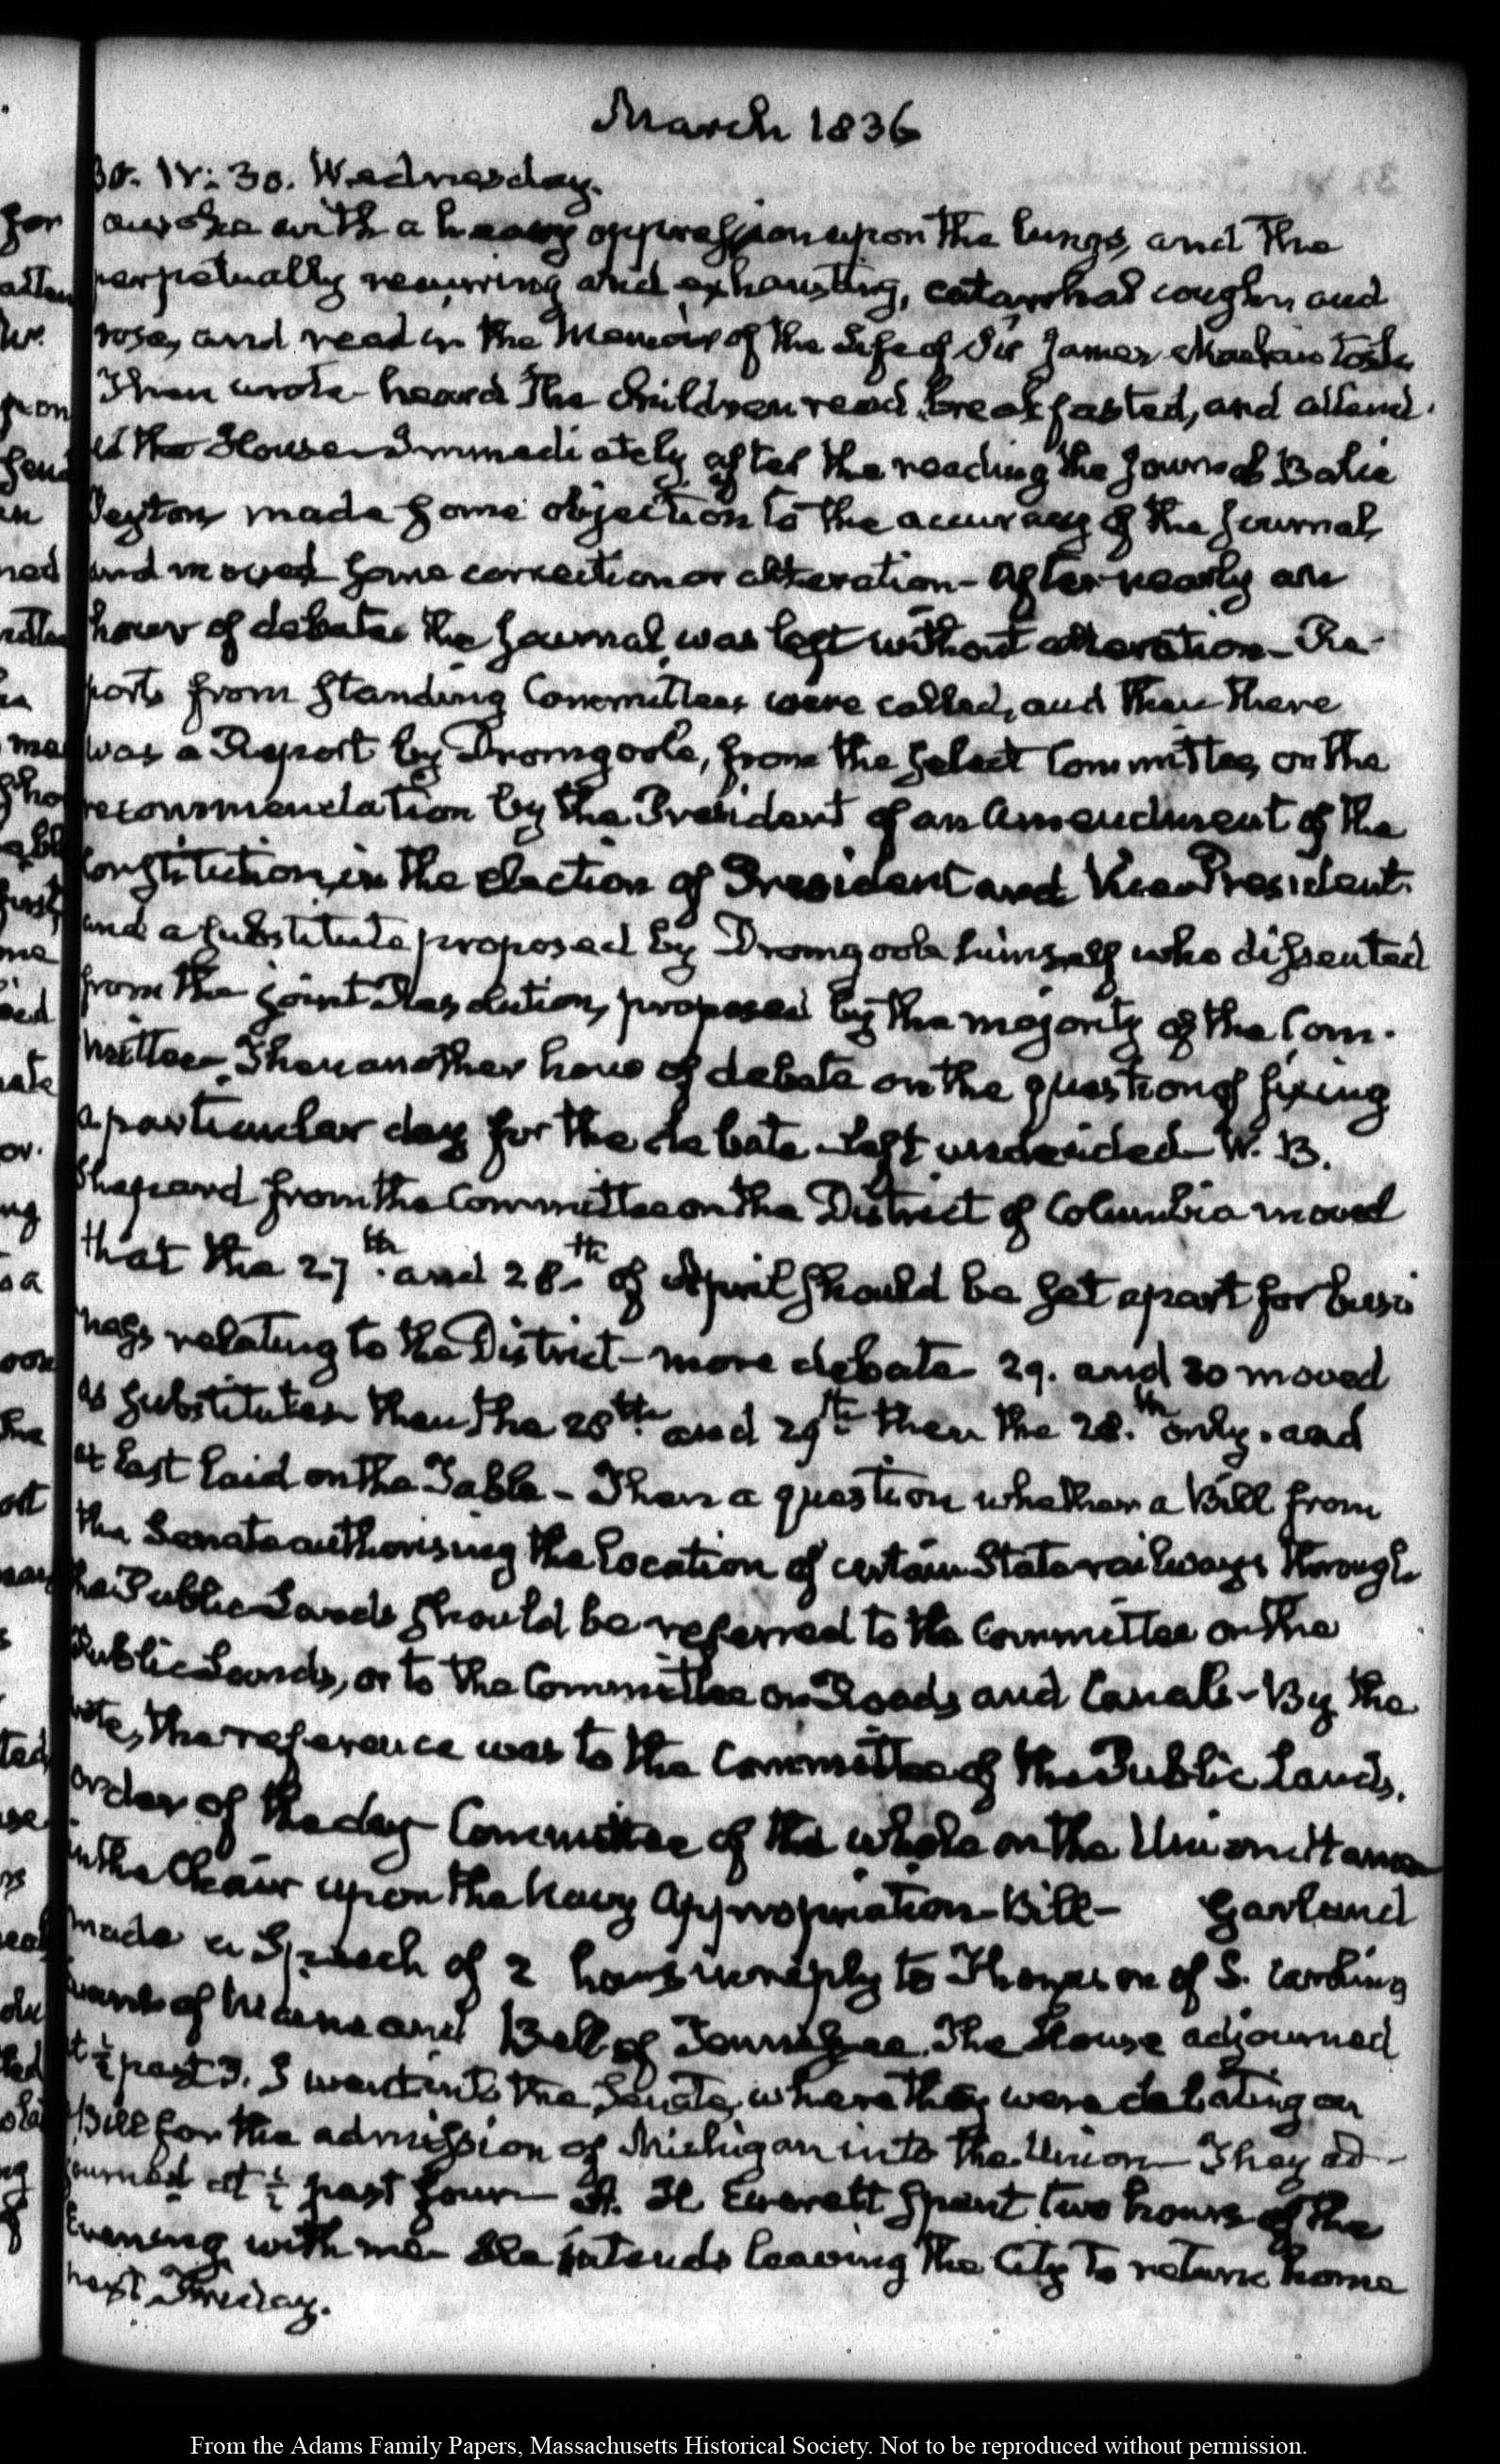 March 1836
30. IV:30. Wednesday.
awoke with a heavy oppression upon the lungs, and the
perpetually recurring and exhausting, catarrhal cough, and
rose, and read in the Memoir of the Life of Sir James Mackintosh
Then wrote - heard the Children read, breakfasted, and attend-
ed the House - Immediately after the reading the Journal Balie
Peyton, made some objection to the accuracy of the Journal,
and moved some correction or alteration - After nearly an
hour of debate the Journal was left without alteration - Re-
ports from standing Committees were called, and then there
was a Report by Dromgoole, from the select Committee, on the
recommendation by the President of an Amendment of the
Constitution, in the election of President and Vice President.
and a substitute proposed by Dromgoole himself who dissented
from the joint Resolution, proposed by the majority of the Com-
mittee - Then another hour of debate on the question of fixing
a particular day for the debate - left undecided - W. B.
Shepard from the Committee on the District of Columbia moved
that the 27th. and 28th. of April should be set apart for busi
ness relating to the District - more debate - 29. and 30 moved
as substitutes - then the 28th. and 29th. then the 28.th only. and
at last laid on the Table - Then a question whether a Bill from
the Senate authorising the location of certain State railways through
the Public Lands should be referred to the Committee on the
Public Lands, or to the Committee on Roads and Canals - By the
vote, the reference was to the Committee of the Public Lands.
order of the day - Committee of the whole on the Union Mann
in the Chair upon the Navy Appropriation - Bill - Garland
made a Speech of 2 hours in reply to Thompson of S. Carolina
Evans of Maine and Bell of Tennessee. The House adjourned
at ½ past 3. I went into the Senate, where they were debating on
a Bill for the admission of Michigan into the Union - They ad-
journed at ½ past four - A. H. Everett spent two hours of the
Evening with me - He intends leaving the City to return home
next Friday.
From the Adams Family Papers, Massachusetts Historical Society. Not to be reproduced without permission.